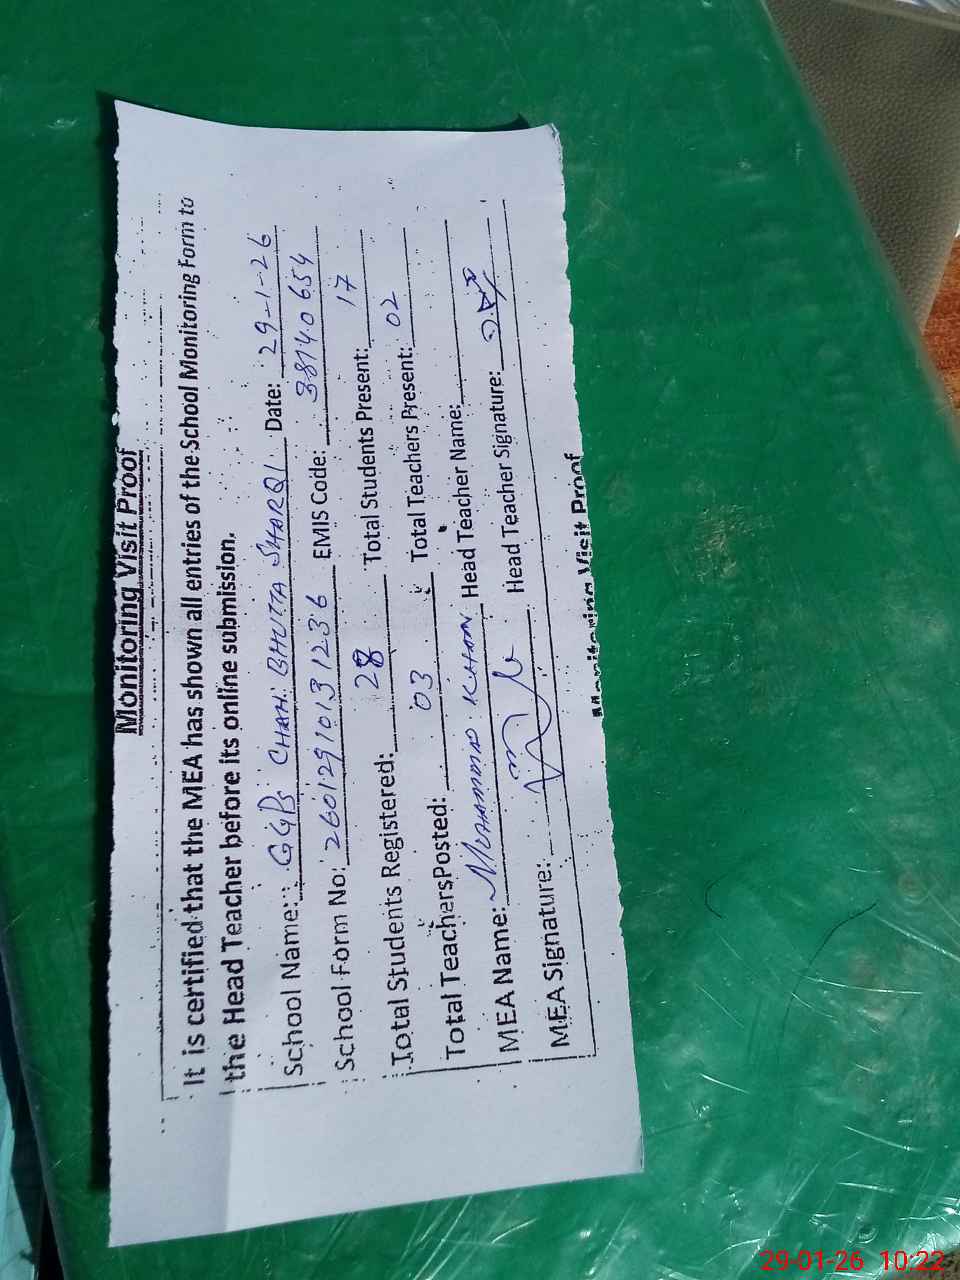 Monitoring Visit Proof
It is certified that the MEA has shown all entries of the School Monitoring Form to
the Head Teacher before its online submission.
School Name: GGPS CHAH BHUTTA SHARQI Date: 29-1-26
School Form No: 26012910131236 EMIS Code: 38140654
Total Students Registered: 28 Total Students Present: 17
Total TeachersPosted: 03 Total Teachers Present: 02
MEA Name: MUHAMMAD KHAN Head Teacher Name:
MEA Signature: Head Teacher Signature:
Monitoring Visit Proof
29-01-26 10:22